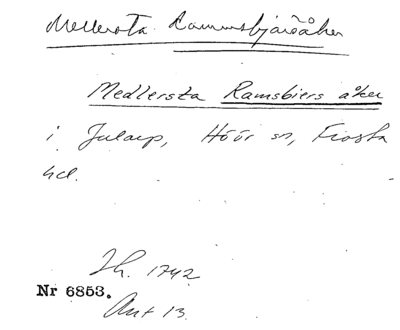 Mellersta Rammsbjärsåker
Medlersta Ramsbiers åker
i Jularp, Höör sn, Frosta
hd.
Jh. 1742
Nr 6853.
Akt 13